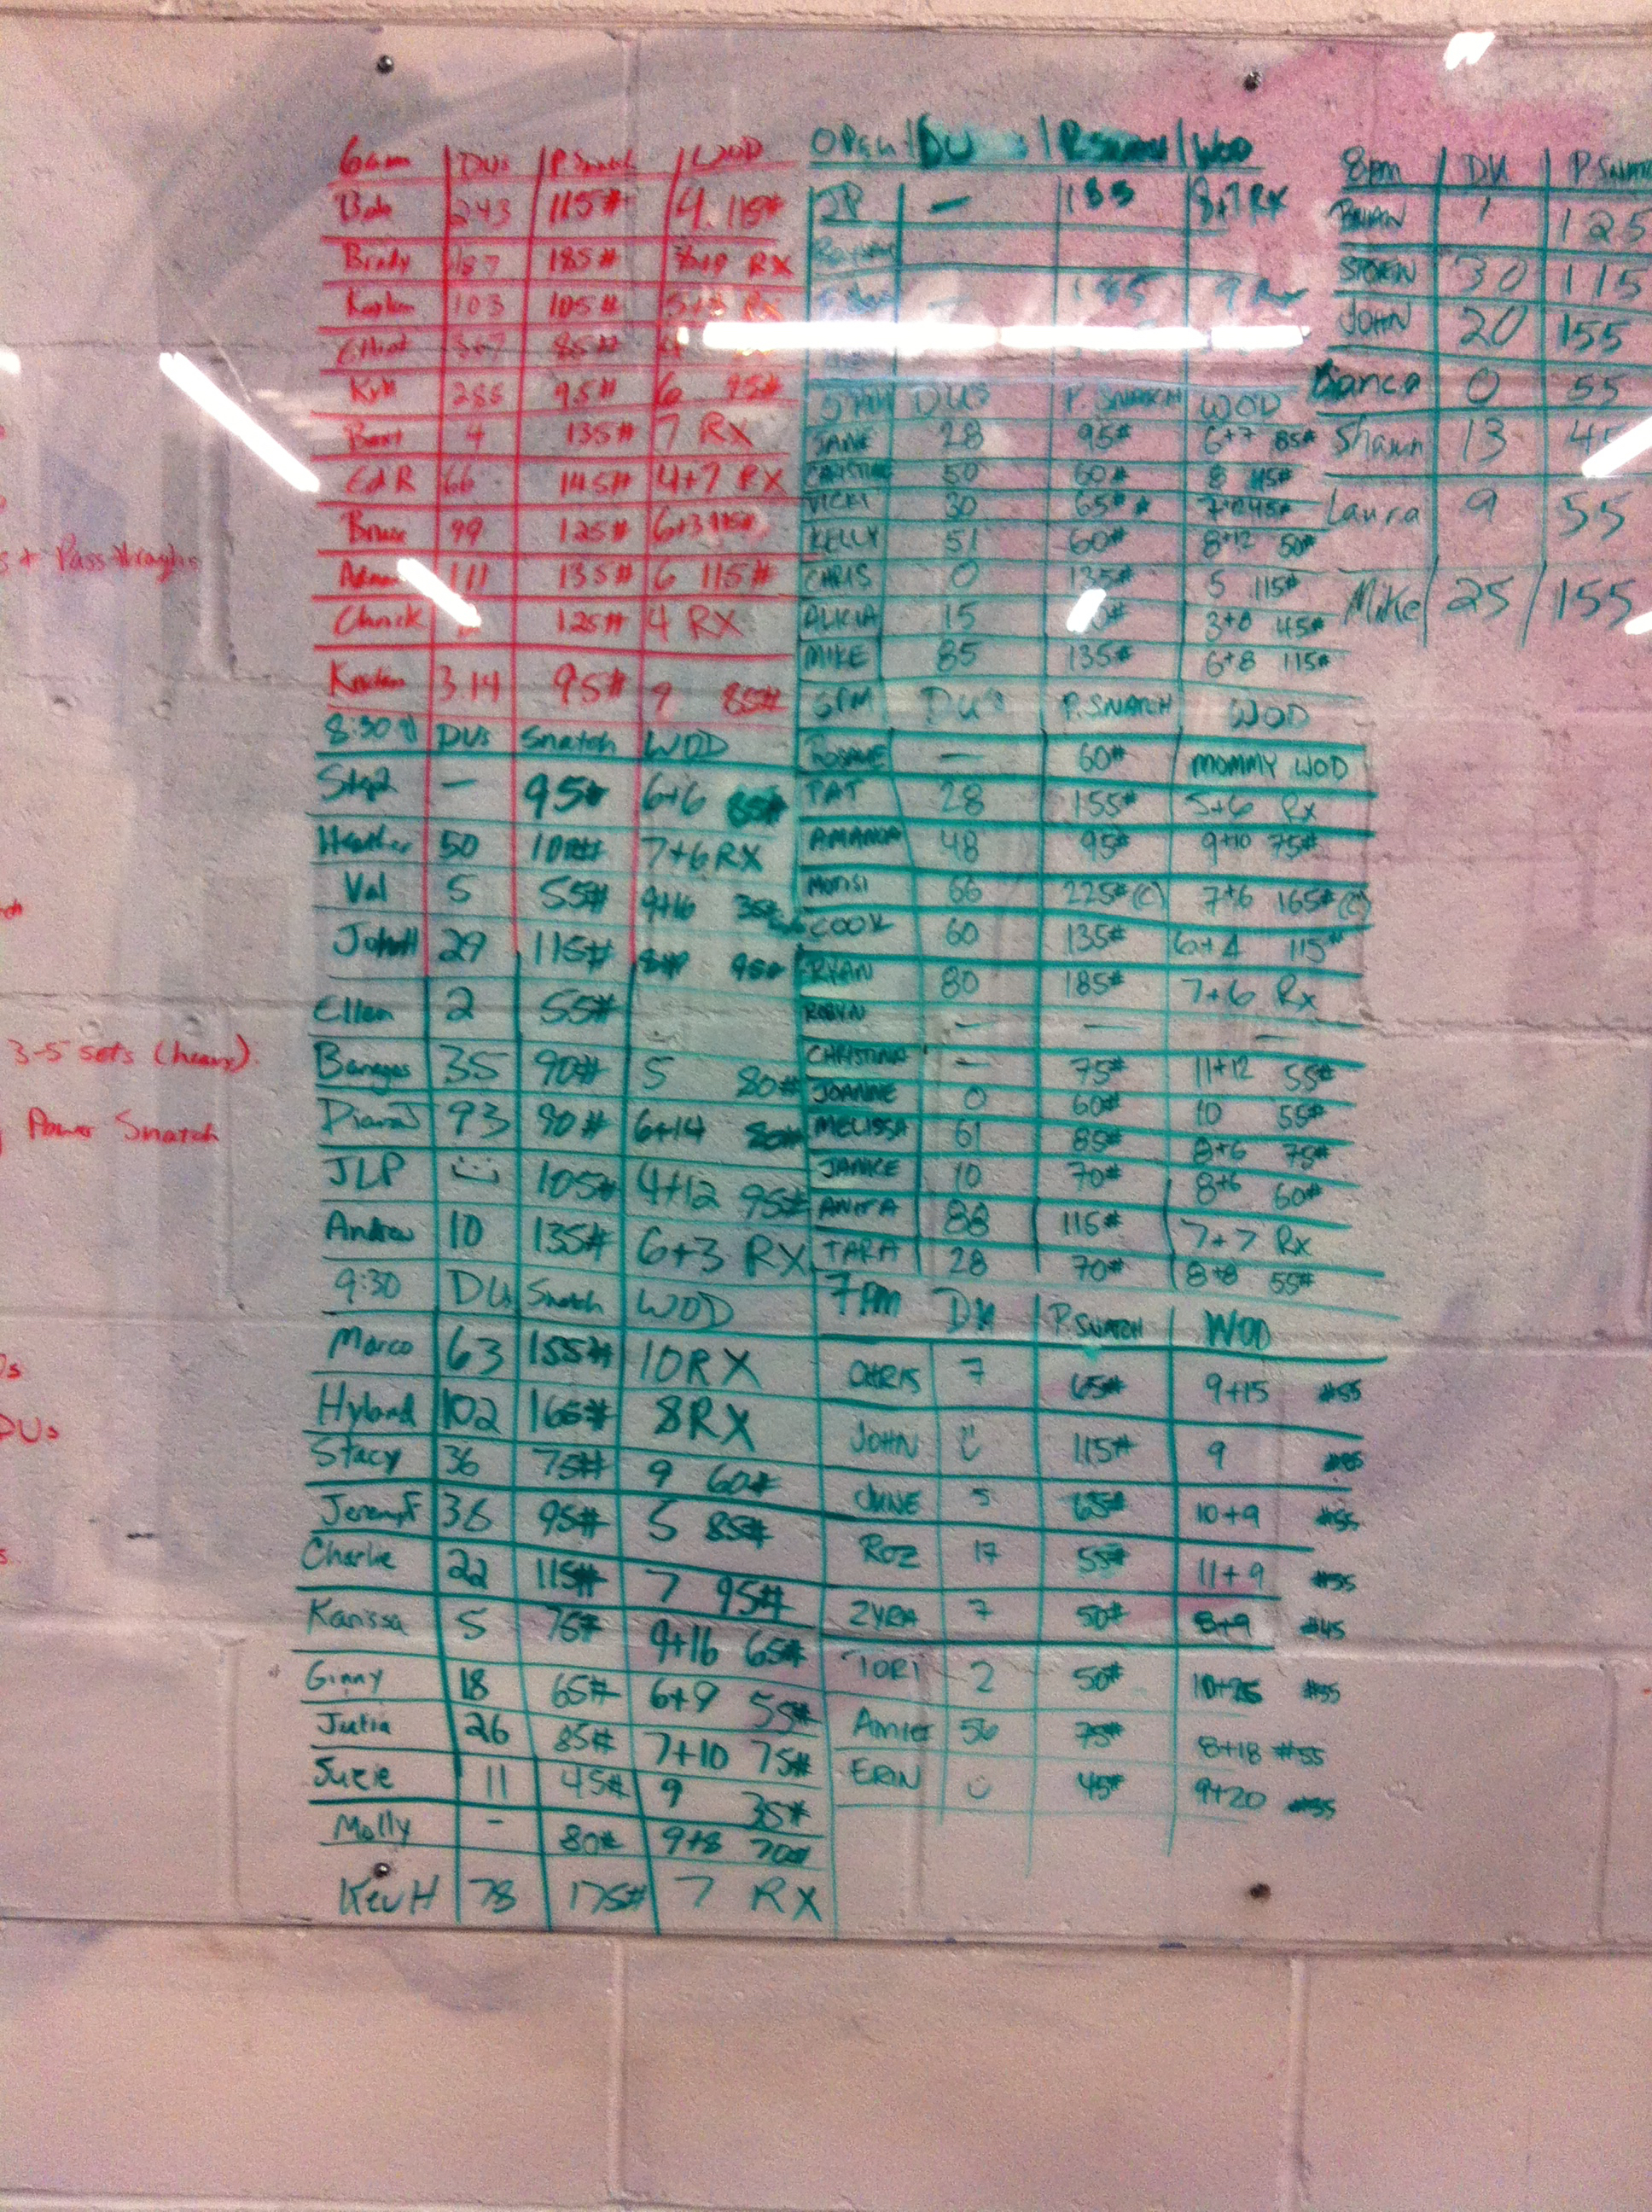 s + Pass throughs
3-5 sets (heavy)
Power Snatch
DUs
6am DUs P. Snatch WOD
Bob 243 115# 4 115#
Brady 187 185# RX
103 105# 5+3
85#
Kyle 95# 6 95#
4 135# 7 RX
Ed R 66 145# 4+7 RX
Bruce 99 125# 6+3 115#
111 135# 6 115#
Chuck 125# 4 RX
Kristen 314 95# 9 85#
8:30 DUs Snatch WOD
— 95# 6+6 85#
Heather 50 7+6 RX
Val 5 55# 9+16 35#
JohnH 29 115# 95#
Ellen 2 55#
Banegas 35 90# 5 80#
DianaJ 93 90# 6+14 80#
JLP 105# 4+12 95#
Andrew 10 135# 6+3 RX
9:30 DUs Snatch WOD
Marco 63 155# 10 RX
Hyland 102 165# 8 RX
Stacy 36 75# 9 60#
JeremyF 36 95# 5 85#
Charlie 22 115# 7 95#
Karissa 5 75# 9+16 65#
Ginny 18 65# 6+9 55#
Julia 26 85# 7+10 75#
Suzie 11 45# 9 35#
Molly - 80# 9+8 70#
KevH 78 175# 7 RX
Open DU P. Snatch WOD
JP — 185 8+7 RX
185 9 Rx
DUs P. SNATCH WOD
JANE 28 95# 6+7 85#
CHRISTINE 50 60# 8 45#
VICKI 30 65#
KELLY 51 60# 8+12 50#
CHRIS 0 135# 5 115#
ALICIA 15 3+8 45#
MIKE 85 135# 6+8 115#
5PM DU's P. SNATCH WOD
— 60# MOMMY WOD
PAT 28 155# 5+6 Rx
AMANDA 48 95# 9+10 75#
66 225# (C) 7+6 165# (C)
COOK 60 135# 6+4 115#
RYAN 80 185# 7+6 Rx
ROBYN — — —
CHRISTINA - 75# 11+12 55#
JOANNE 0 60# 10 55#
MELISSA 61 85# 8+6 75#
JANICE 10 70# 8+6 60#
ANITA 88 115# 7+7 Rx
TARA 28 70# 8+8 55#
7PM DU P. SNATCH WOD
CHRIS 7 65# 9+15 #55
JOHN 115# 9
JUNE 5 65# 10+9 #55
ROZ 17 55# 11+9 #55
ZYRA 7 50# 8+9 #45
TORI 2 50# #55
AMIE 56 75# 8+18 #55
ERIN 45# 9+20
8pm DU P. SNATCH
BRIAN 1 125
30 115
JOHN 20 155
Bianca 0 55
Shawn 13 45
Laura 9 55
Mike 25 155